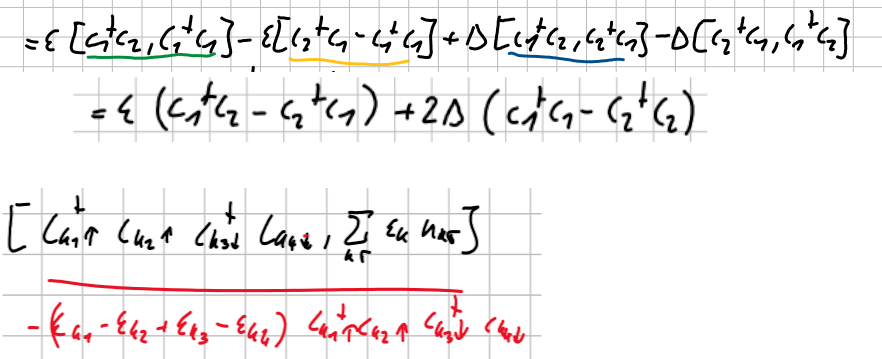 = ε [c₁†c₂, c₁†c₁] - ε[c₂†c₁ - c₁†c₁] + Δ [c₁†c₂, c₂†c₁] - Δ [c₂†c₁, c₁†c₂]
= ε (c₁†c₂ - c₂†c₁) + 2Δ (c₁†c₁ - c₂†c₂)
[c†ₖ₁↑ cₖ₂↑ c†ₖ₃↓ cₖ₄↓, ∑ₖσ εₖ nₖσ]
-(εₖ₁ - εₖ₂ + εₖ₃ - εₖ₄) c†ₖ₁↑ cₖ₂↑ c†ₖ₃↓ cₖ₄↓